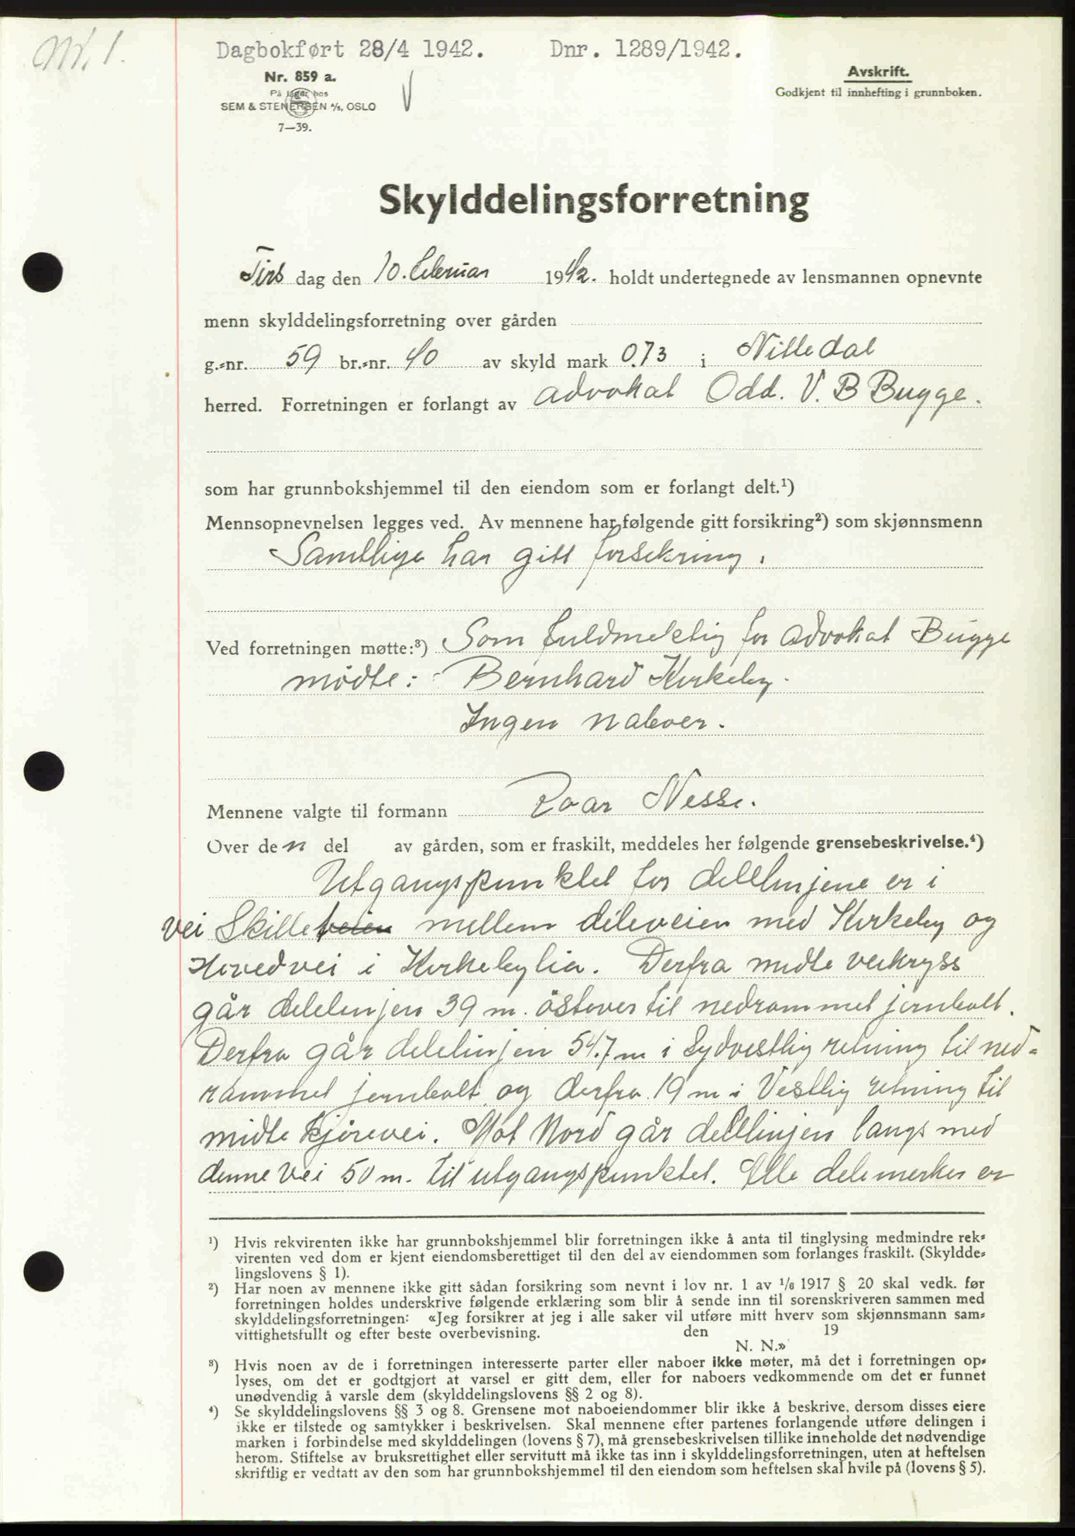 Nr. 1.
Dagbokført 28/4 1942. Dnr. 1289/1942.
Nr. 859 a.
På lager hos
SEM & STENERSEN A/S, OSLO
7—39.
Avskrift.
Godkjent til innhefting i grunnboken.
Skylddelingsforretning
Tirs dag den 10. februar 1942. holdt undertegnede av lensmannen opnevnte
menn skylddelingsforretning over gården
g.-nr. 59 br.-nr. 40 av skyld mark 0,73 i Nittedal
herred. Forretningen er forlangt av advokat Odd. V. B Bugge.
som har grunnbokshjemmel til den eiendom som er forlangt delt.¹)
Mennsopnevnelsen legges ved. Av mennene har følgende gitt forsikring²) som skjønnsmenn
Samtlige har gitt forsikring.
Ved forretningen møtte:³) Som fuldmektig for advokat Bugge
mødte: Bernhard Kirkeby.
Ingen naboer.
Mennene valgte til formann Roar Nesse.
Over den del av gården, som er fraskilt, meddeles her følgende grensebeskrivelse.⁴)
Utgangspunktet for dellinjene er i
vei Skille veien mellem deleveien med Kirkeby og
Hovedvei i Kirkebylia. Derfra midte veikryss
går delelinjen 39 m. östover til nedrammet jernbolt.
Derfra går delelinjen 54.7 m i Sydvestlig retning til ned-
rammet jernbolt og derfra 19 m i Vestlig retning til
midte kjörevei. Mot Nord går dellinjen langs med
denne vei 50 m. til utgangspunktet. Alle delemerker er
¹) Hvis rekvirenten ikke har grunnbokshjemmel blir forretningen ikke å anta til tinglysing medmindre rek-
virenten ved dom er kjent eiendomsberettiget til den del av eiendommen som forlanges fraskilt. (Skyldde-
lingslovens § 1).
²) Har noen av mennene ikke gitt sådan forsikring som nevnt i lov nr. 1 av 1/6 1917 § 20 skal vedk. før
forretningen holdes underskrive følgende erklæring som blir å sende inn til sorenskriveren sammen med
skylddelingsforretningen: «Jeg forsikrer at jeg i alle saker vil utføre mitt hverv som skjønnsmann sam-
vittighetsfullt og efter beste overbevisning. den 19
N. N.»
³) Hvis noen av de i forretningen interesserte parter eller naboer ikke møter, må det i forretningen op-
lyses, om det er godtgjort at varsel er gitt dem, eller for naboers vedkommende om det er funnet
unødvendig å varsle dem (skylddelingslovens §§ 2 og 8).
⁴) Se skylddelingslovens §§ 3 og 8. Grensene mot naboeiendommer blir ikke å beskrive, dersom disses eiere
ikke er tilstede og samtykker i beskrivelsen. Skal mennene efter partenes forlangende utføre delingen i
marken i forbindelse med skylddelingen (lovens § 7), må grensebeskrivelsen tillike inneholde det nødvendige
herom. Stiftelse av bruksrettighet eller servitutt må ikke tas inn i skylddelingsforretningen, uten at heftelsen
skriftlig er vedtatt av den som har grunnbokshjemmel til den eiendom som heftelsen skal hvile på (lovens § 5).